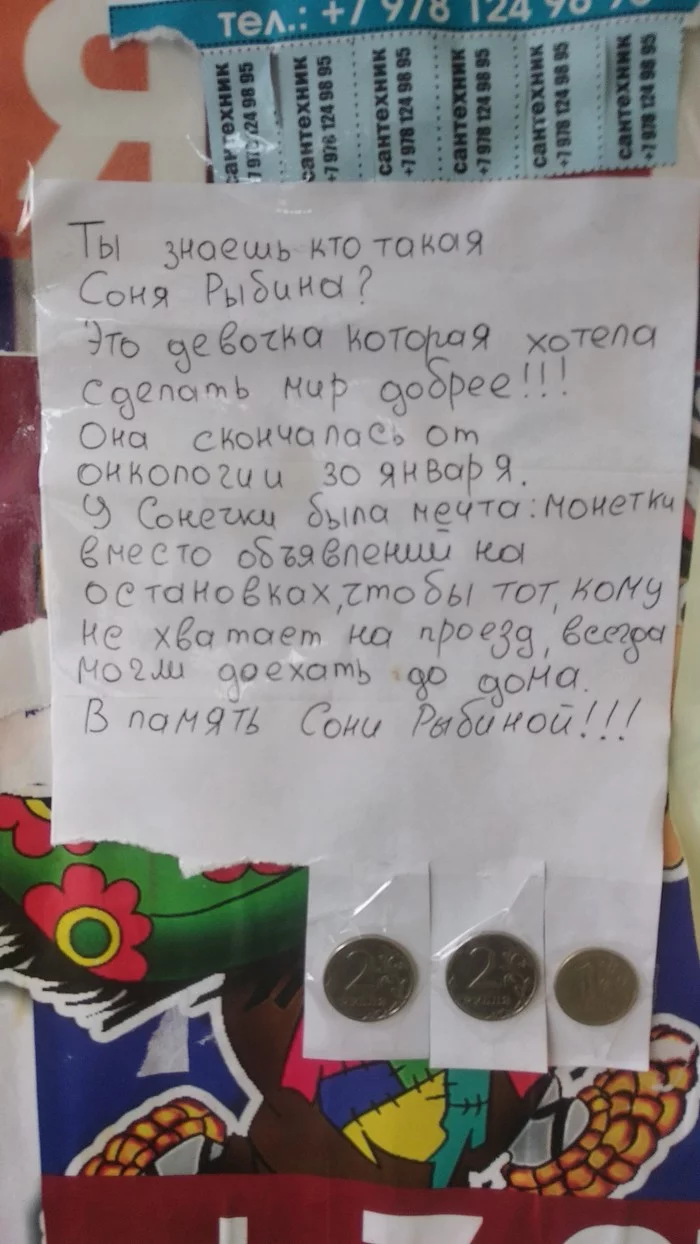 Я
тел.: +7 978 124 98
сантехник
+7 978 124 98 95
сантехник
+7 978 124 98 95
сантехник
+7 978 124 98 95
сантехник
+7 978 124 98 95
сантехник
+7 978 124 98 95
сантехник
+7 978 124 98 95
Ты знаешь кто такая
Соня Рыбина?
Это девочка которая хотела
сделать мир добрее!!!
Она скончалась от
онкологии 30 января.
У Сонечки была мечта: монетки
вместо объявлений на
остановках, чтобы тот, кому
не хватает на проезд, всегда
могли доехать до дома.
В память Сони Рыбиной!!!
2
РУБЛЯ
2
РУБЛЯ
1